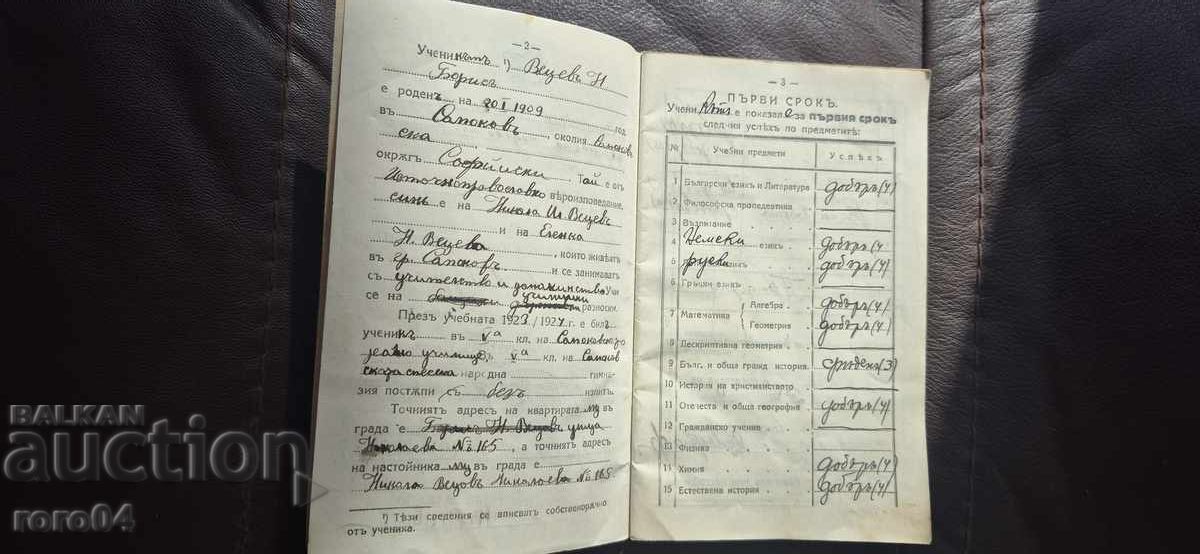 — 2 —
Ученикътъ ¹) Вецевъ Н
Борисъ
е роденъ на 20 I 1909 год.
въ Самоковъ, околия Самоков
ска
окржгъ Софийски Той е отъ
Источноправославно вѣроизповедание,
синъ е на Никола Ил. Вецевъ
и на Еленка
Н. Вецева, които живѣятъ
въ гр. Самоковъ и се занимаватъ
съ учителство и домакинство Учи
се на училищни разноски.
Презъ учебната 1923/1924 г. е билъ
ученикъ въ Vа кл. на Самоковското
училище, Vа кл. на Самоков
народна гим-
назия постѫпи съ безъ изпитъ.
Точниятъ адресъ на квартирата му въ
града е Н. Вецовъ улица
Николаева № 165, а точниятъ адресъ
на настойника му въ града е
Никола Вецовъ Николаева № 165
¹) Тѣзи сведения се вписватъ собственоржчно
отъ ученика.
— 3 —
ПЪРВИ СРОКЪ.
Учени кътъ е показалъ за първия срокъ
следния успѣхъ по предметитѣ:
№ Учебни предмети Успѣхъ
1 Български езикъ и Литература добъръ (4)
2 Философска пропедевтика
3 Възпитание
4 Немски езикъ добъръ (4
5 руски езикъ добъръ (4)
6 Гръцки езикъ
7 Математика { Алгебра добъръ (4)
Геометрия добъръ (4)
8 Дескриптивна геометрия
9 Бълг. и обща гражд история сръденъ (3)
10 История на християнството
11 Отечеств и обща география добъръ (4)
12 Гражданско учение
13 Физика
14 Химия добъръ (4)
15 Естествена история добъръ (4)
BALKAN
auction
roro04